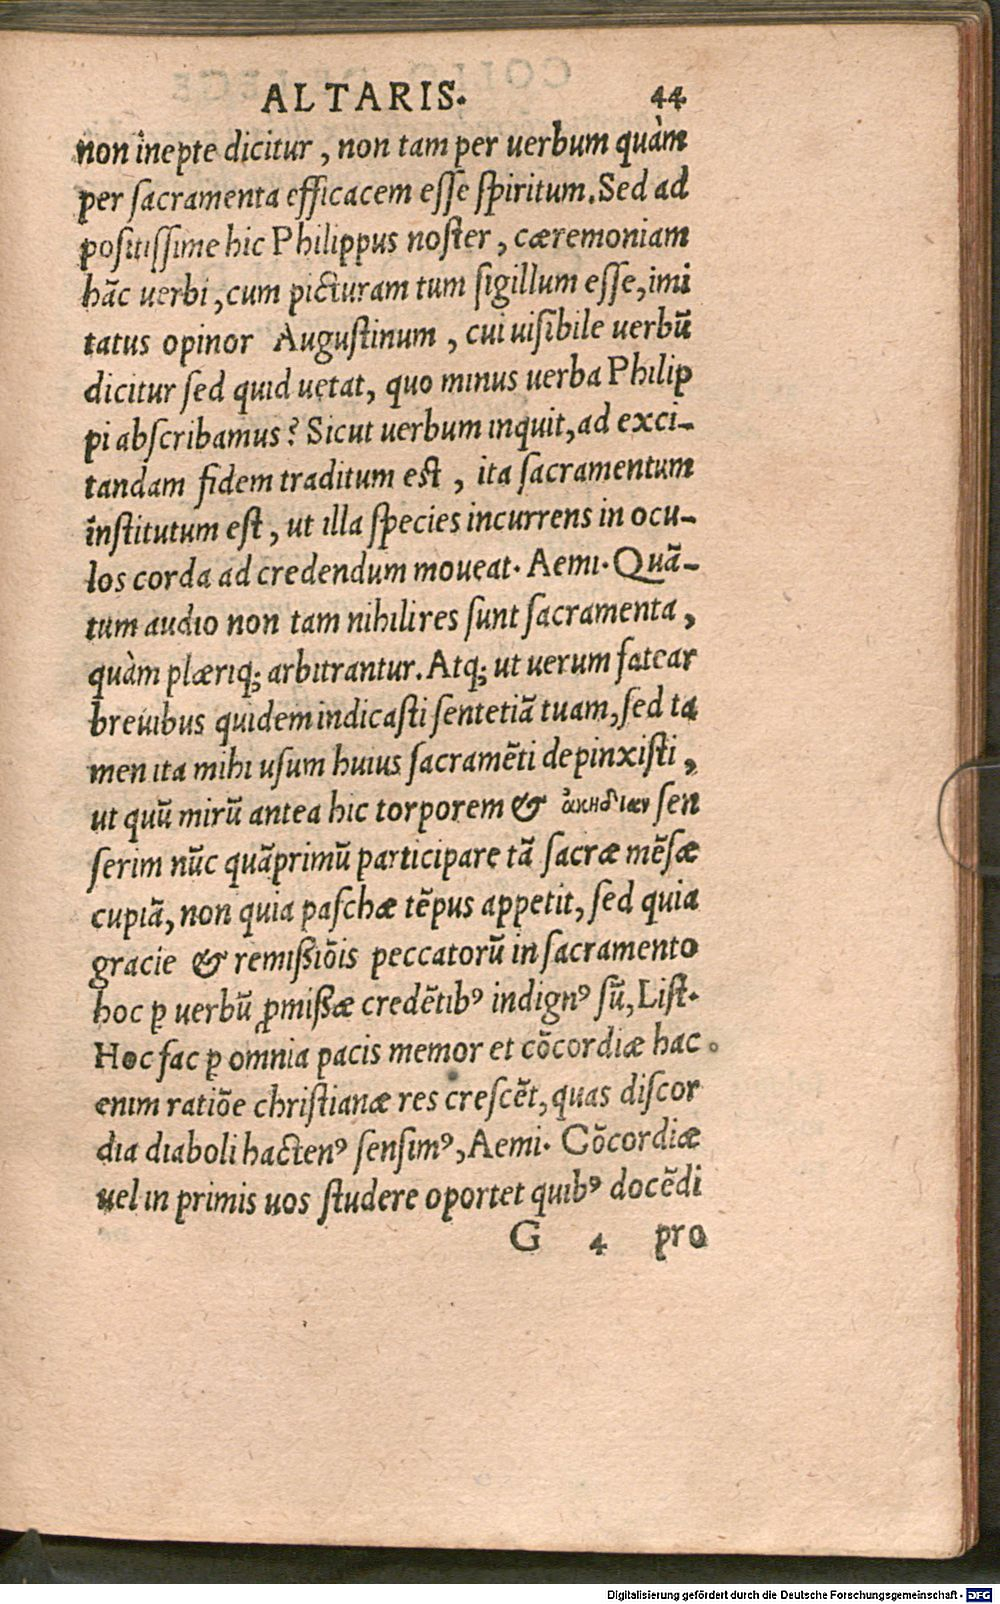 ALTARIS. 44
non inepte dicitur, non tam per uerbum quàm
per sacramenta efficacem esse spiritum. Sed ad
positissime hic Philippus noster, cæremoniam
hãc uerbi, cum picturam tum sigillum esse, imi
tatus opinor Augustinum, cui uisibile uerbũ
dicitur sed quid uetat, quo minus uerba Philip
pi abscribamus? Sicut uerbum inquit, ad exci-
tandam fidem traditum est, ita sacramentum
institutum est, ut illa species incurrens in ocu-
los corda ad credendum moueat. Aemi. Quã-
tum audio non tam nihili res sunt sacramenta,
quàm plæriq; arbitrantur. Atq; ut uerum fatear
breuibus quidem indicasti sentetiã tuam, sed ta
men ita mihi usum huius sacramẽti depinxisti,
ut quũ mirũ antea hic torporem & ἀκηδίαν sen
serim nũc quãprimũ participare tã sacræ mẽsæ
cupiã, non quia paschæ tẽpus appetit, sed quia
gracie & remißiõis peccatorũ in sacramento
hoc ꝑ uerbũ ꝓmißæ credẽtibꝰ indignꝰ sũ, List.
Hoc fac ꝑ omnia pacis memor et cõcordiæ hac
enim ratiõe christianæ res crescẽt, quas discor
dia diaboli hactenꝰ sensimꝰ, Aemi. Cõcordiæ
uel in primis uos studere oportet quibꝰ docẽdi
G 4 pro
Digitalisierung gefördert durch die Deutsche Forschungsgemeinschaft - DFG